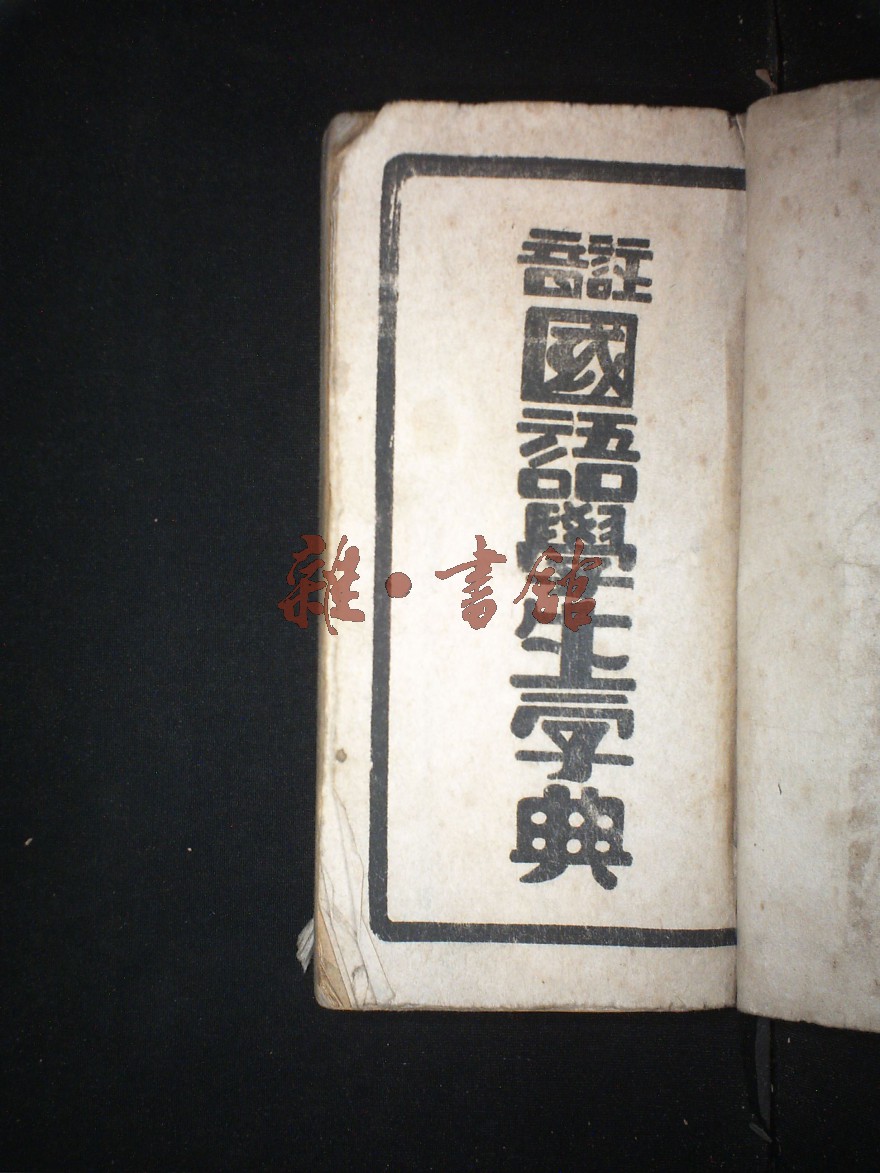 註音
國語學生字典
雜·書館